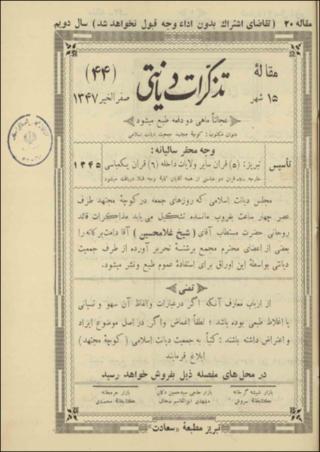 مقاله ۲۰ (تقاضای اشتراك بدون اداء وجه قبول نخواهد شد) سال دویم
مقالهٔ
۱۵ شهر
تذکرات دیانتی
(۴۴)
صفر الخیر ۱۳۴۷
عجالتاً ماهی دو دفعه طبع میشود
عنوان مکتوبات: کوچهٔ مجتهد جمعیت دیانت اسلامی
وجه محقر سالیانه:
تأسیس
تبریز: (۵) قران سایر ولایات داخله (۶) قران
۱۳۴۵
مجلس دیانت اسلامی که روزهای جمعه در کوچهٔ مجتهد طرف
عصر چهار ساعت بغروب مانده تشکیل می یابد مذاکرات قائد
روحانی حضرت مستطاب آقای (شیخ غلامحسین) آقا دامت برکاته را
بعضی از اعضای محترم مجمع برشتهٔ تحریر آورده از طرف جمعیت
دیانتی بواسطهٔ این اوراق برای استفادهٔ عموم طبع ونشر میشود.
تمنی
از ارباب معارف آنکه: اگر در عبارات والفاظ آن سهو و نسیانی
یا اغلاط طبعی بوده باشد؛ لطفاً اغماض واگر در اصل موضوع ایراد
و اعتراض داشته باشند: کتباً به جمعیت دیانت اسلامی (کوچهٔ مجتهد)
ابلاغ فرمایند
در محل‌های مفصله ذیل بفروش خواهد رسید
بازار شیشه گرخانه
کتابخانهٔ سروش
بازار حاجی سید حسین دکان
مشهدی ابوالقاسم
بازار حرمخانه
کتابخانهٔ محمدی
تبریز مطبعهٔ «سعادت»